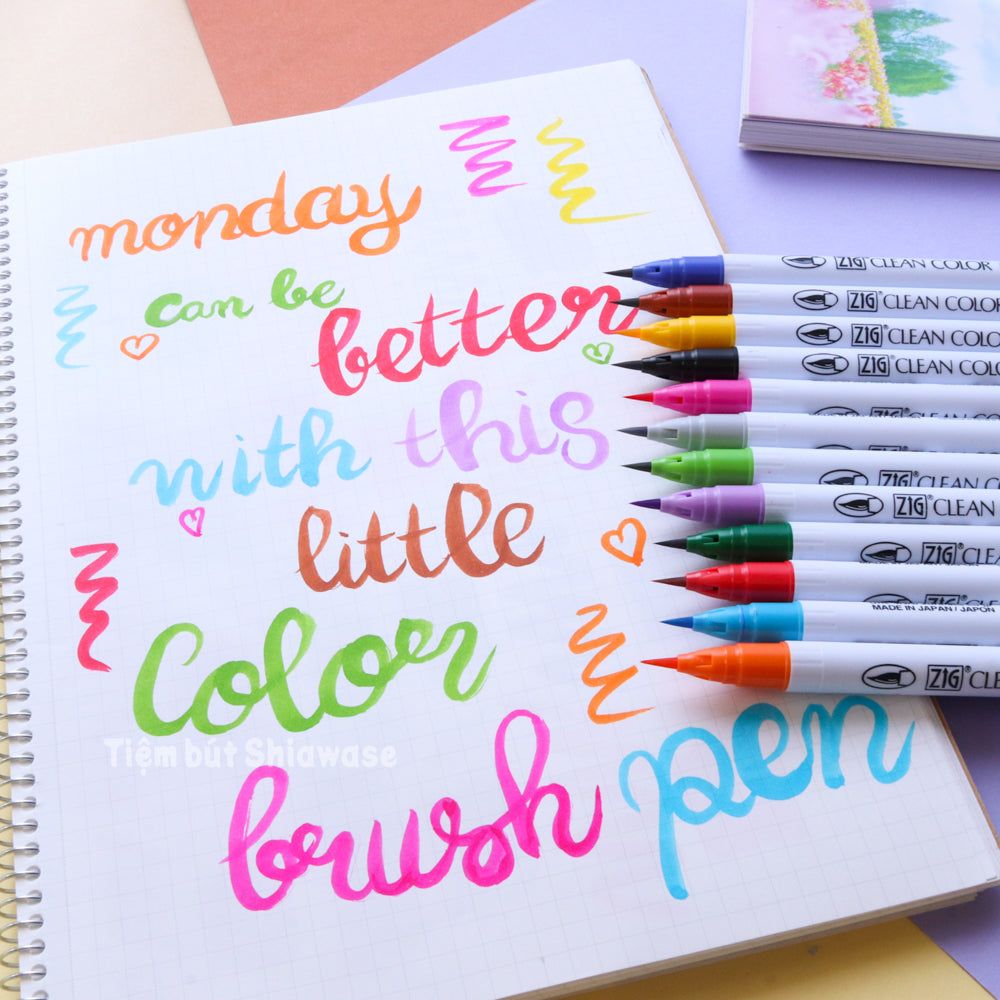 monday
can be
better
with this
little
Color
brush pen
Tiệm bút Shiawase
ZIG® CLEAN COLOR
ZIG CLEAN COLOR
ZIG® CLEAN COLO
ZIG® CLEAN COLO
ZIG® CLEAN
ZIG® CLEAN
MADE IN JAPAN / JAPON
ZIG® CLE